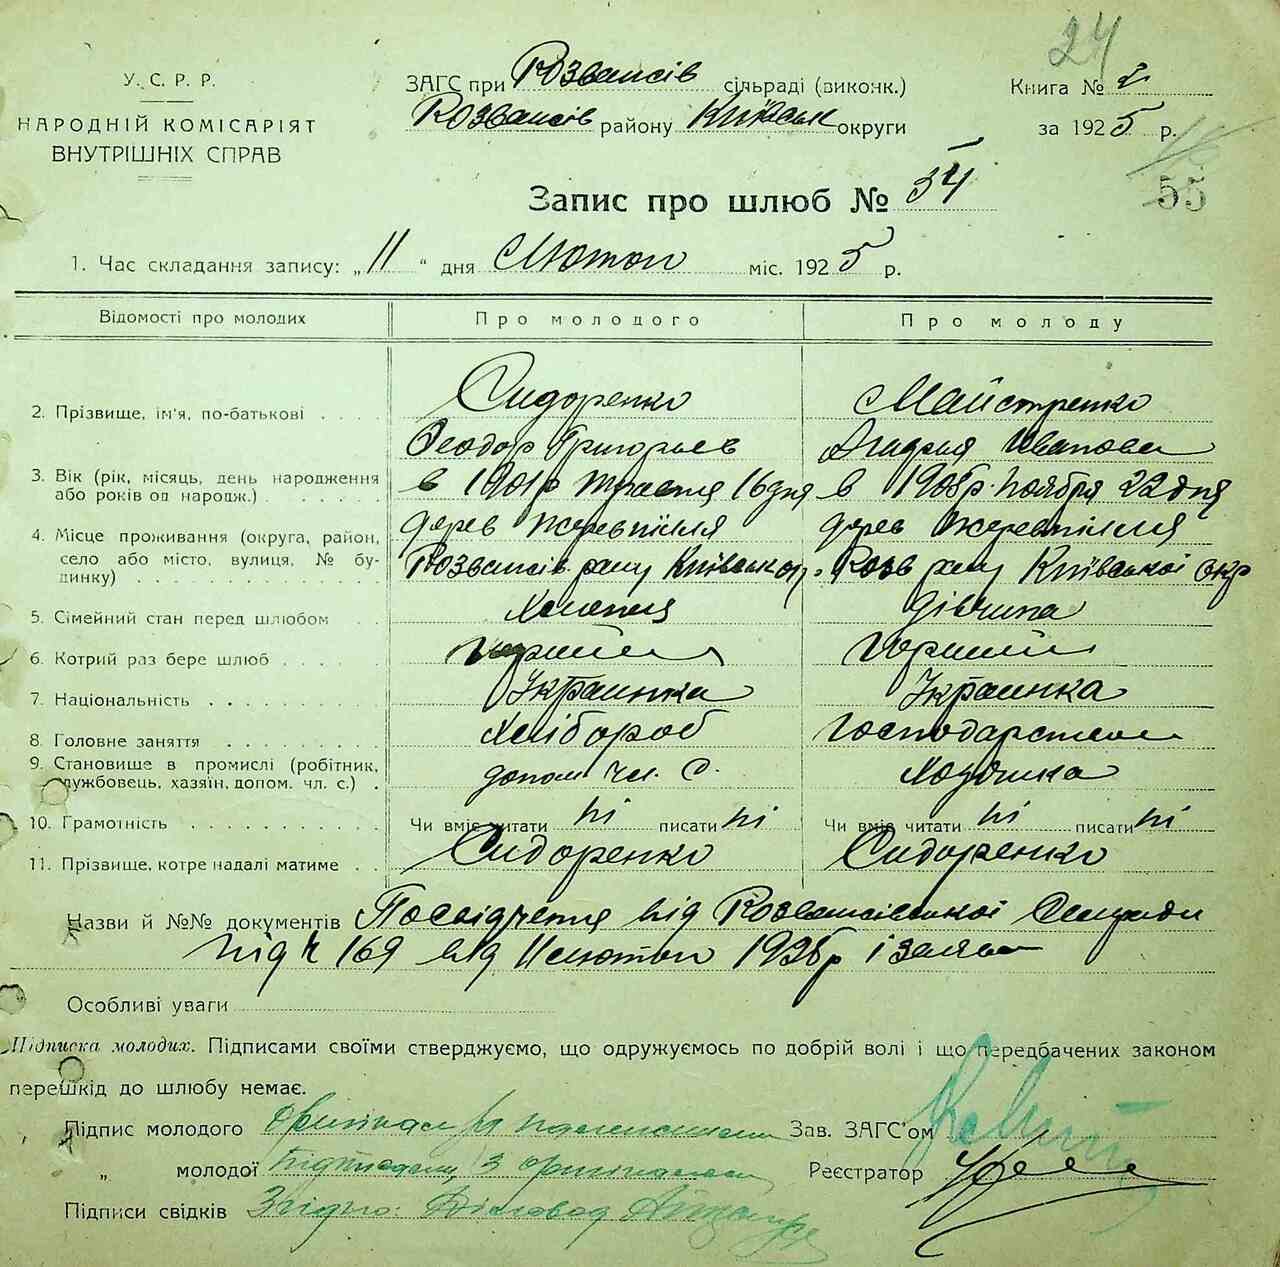 24
У.С.Р.Р.
НАРОДНІЙ КОМІСАРІЯТ
ВНУТРІШНІХ СПРАВ
ЗАГС при Розважів сільраді (виконк.)
Розважів району Київськ округи
Книга №
за 1925 р.
55
Запис про шлюб № 54
1. Час складання запису: „11" дня Лютого міс. 1925 р.
Відомості про молодих
Про молодого
Про молоду
2. Прізвище, ім'я, по-батькові
Сидоренко
Феодор Григорьев
Майстренко
Агафия Иванова
3. Вік (рік, місяць, день народження
або років од народж.)
в 1901р травня 16 дня
в 1905р. ноября 22 дня
4. Місце проживання (округа, район,
село або місто, вулиця, № бу-
динку)
дерев Жеревпілля
Розважів рану Київськ окр.
дерев Жеревпілля
Розв рану Київської окр
5. Сімейний стан перед шлюбом
Холостия
дівчина
6. Котрий раз бере шлюб
первий
первий
7. Національність
Украинка
Украинка
8. Головне заняття
Хлібороб
Господарством
9. Становище в промислі (робітник,
службовець, хазяїн, допом. чл. с.)
допом чл. С.
Хозяйка
10. Грамотність
Чи вміє читати ні писати ні
Чи вміє читати ні писати ні
11. Прізвище, котре надалі матиме
Сидоренко
Сидоренко
Назви й №№ документів Посвідчення від Розважівської Сільради
під ч 169 від 11 лютого 1925р і заява
Особливі уваги
Підписка молодих. Підписами своїми стверджуємо, що одружуємось по добрій волі і що передбачених законом
перешкід до шлюбу немає.
Підпис молодого Оригінал за належними
Зав. ЗАГС'ом
„ молодої підписами, З оригіналом
Реєстратор
Підписи свідків Згідно: Діловод